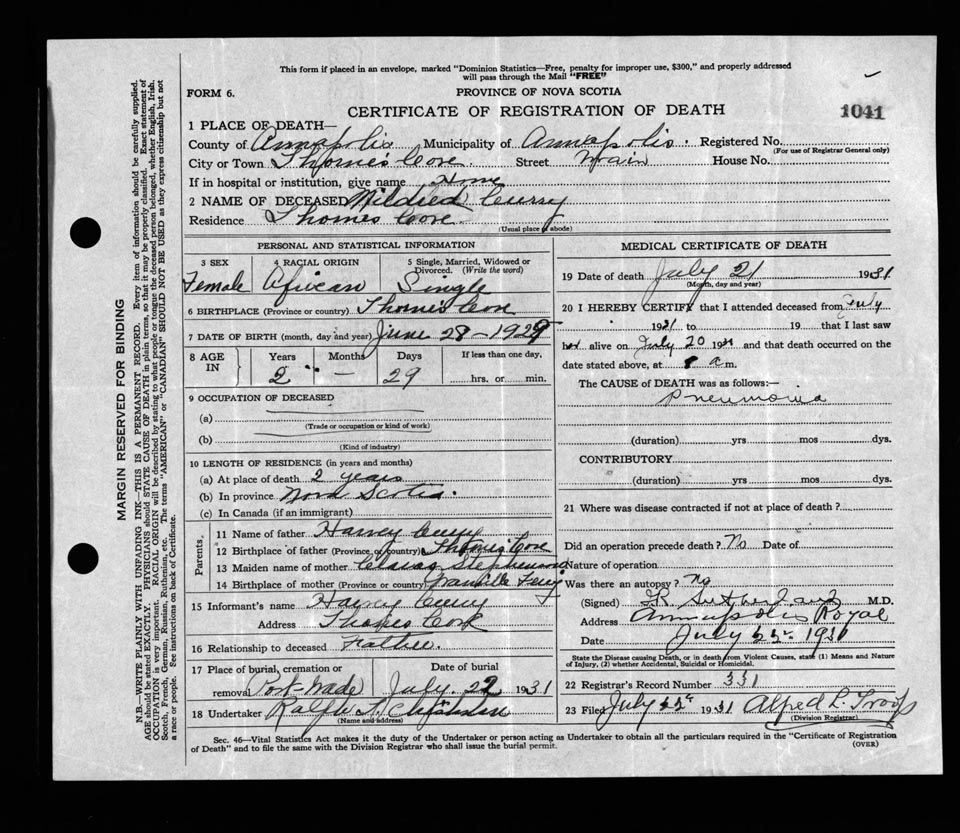 This form if placed in an envelope, marked "Dominion Statistics—Free, penalty for improper use, $300," and properly addressed
will pass through the Mail "FREE"
FORM 6. PROVINCE OF NOVA SCOTIA
CERTIFICATE OF REGISTRATION OF DEATH 1041
1 PLACE OF DEATH—
County of Annapolis Municipality of Annapolis. Registered No.
(For use of Registrar General only)
City or Town Thornes Cove. Street Main House No.
If in hospital or institution, give name Home
2 NAME OF DECEASED Mildred Curry
Residence Thornes Cove
(Usual place of abode)
PERSONAL AND STATISTICAL INFORMATION
3 SEX 4 RACIAL ORIGIN 5 Single, Married, Widowed or Divorced. (Write the word)
Female African Single
6 BIRTHPLACE (Province or country) Thornes Cove
7 DATE OF BIRTH (month, day and year) June 28 - 1929
8 AGE IN Years Months Days If less than one day,
2 — 29 hrs. or min.
9 OCCUPATION OF DECEASED
(a)
(Trade or occupation or kind of work)
(b)
(Kind of industry)
10 LENGTH OF RESIDENCE (in years and months)
(a) At place of death 2 years
(b) In province Nova Scotia.
(c) In Canada (if an immigrant)
Parents
11 Name of father Harvey Curry
12 Birthplace of father (Province or country) Thornes Cove
13 Maiden name of mother Stephenson
14 Birthplace of mother (Province or country) Granville Ferry
15 Informant's name Harvey Curry
Address Thornes Cove
16 Relationship to deceased Father.
17 Place of burial, cremation or removal Date of burial
Port-Wade July. 22 1931
18 Undertaker Ralph
(Name and address)
MEDICAL CERTIFICATE OF DEATH
19 Date of death July 21 1931
(Month, day and year)
20 I HEREBY CERTIFY that I attended deceased from July
1931 to 19 that I last saw
her alive on July 20 1931 and that death occurred on the
date stated above, at 8 a m.
The CAUSE OF DEATH was as follows:—
Pneumonia
(duration) yrs mos dys.
CONTRIBUTORY
(duration) yrs mos dys.
21 Where was disease contracted if not at place of death?
Did an operation precede death? No Date of
Nature of operation
Was there an autopsy? No
(Signed) Sutherland M.D.
Address Annapolis Royal
Date July 22 1931
State the Disease causing Death, or in death from Violent Causes, state (1) Means and Nature
of Injury, (2) whether Accidental, Suicidal or Homicidal.
22 Registrar's Record Number 331
23 Filed July 22 1931 Alfred L. Troop
(Division Registrar)
Sec. 46—Vital Statistics Act makes it the duty of the Undertaker or person acting as Undertaker to obtain all the particulars required in the "Certificate of Registration
of Death" and to file the same with the Division Registrar who shall issue the burial permit. (OVER)
MARGIN RESERVED FOR BINDING
N.B.—WRITE PLAINLY WITH UNFADING INK—THIS IS A PERMANENT RECORD. Every item of information should be carefully supplied.
AGE should be stated EXACTLY. PHYSICIANS should STATE CAUSE OF DEATH in plain terms, so that it may be properly classified. Exact statement of
OCCUPATION is very important. RACIAL ORIGIN will be described by stating to what people or tongue the deceased person belonged, whether English, Irish,
Scotch, French, German, Russian, Ruthenian, etc. The terms "AMERICAN" or "CANADIAN" SHOULD NOT BE USED as they express citizenship but not
a race or people. See instructions on back of Certificate.